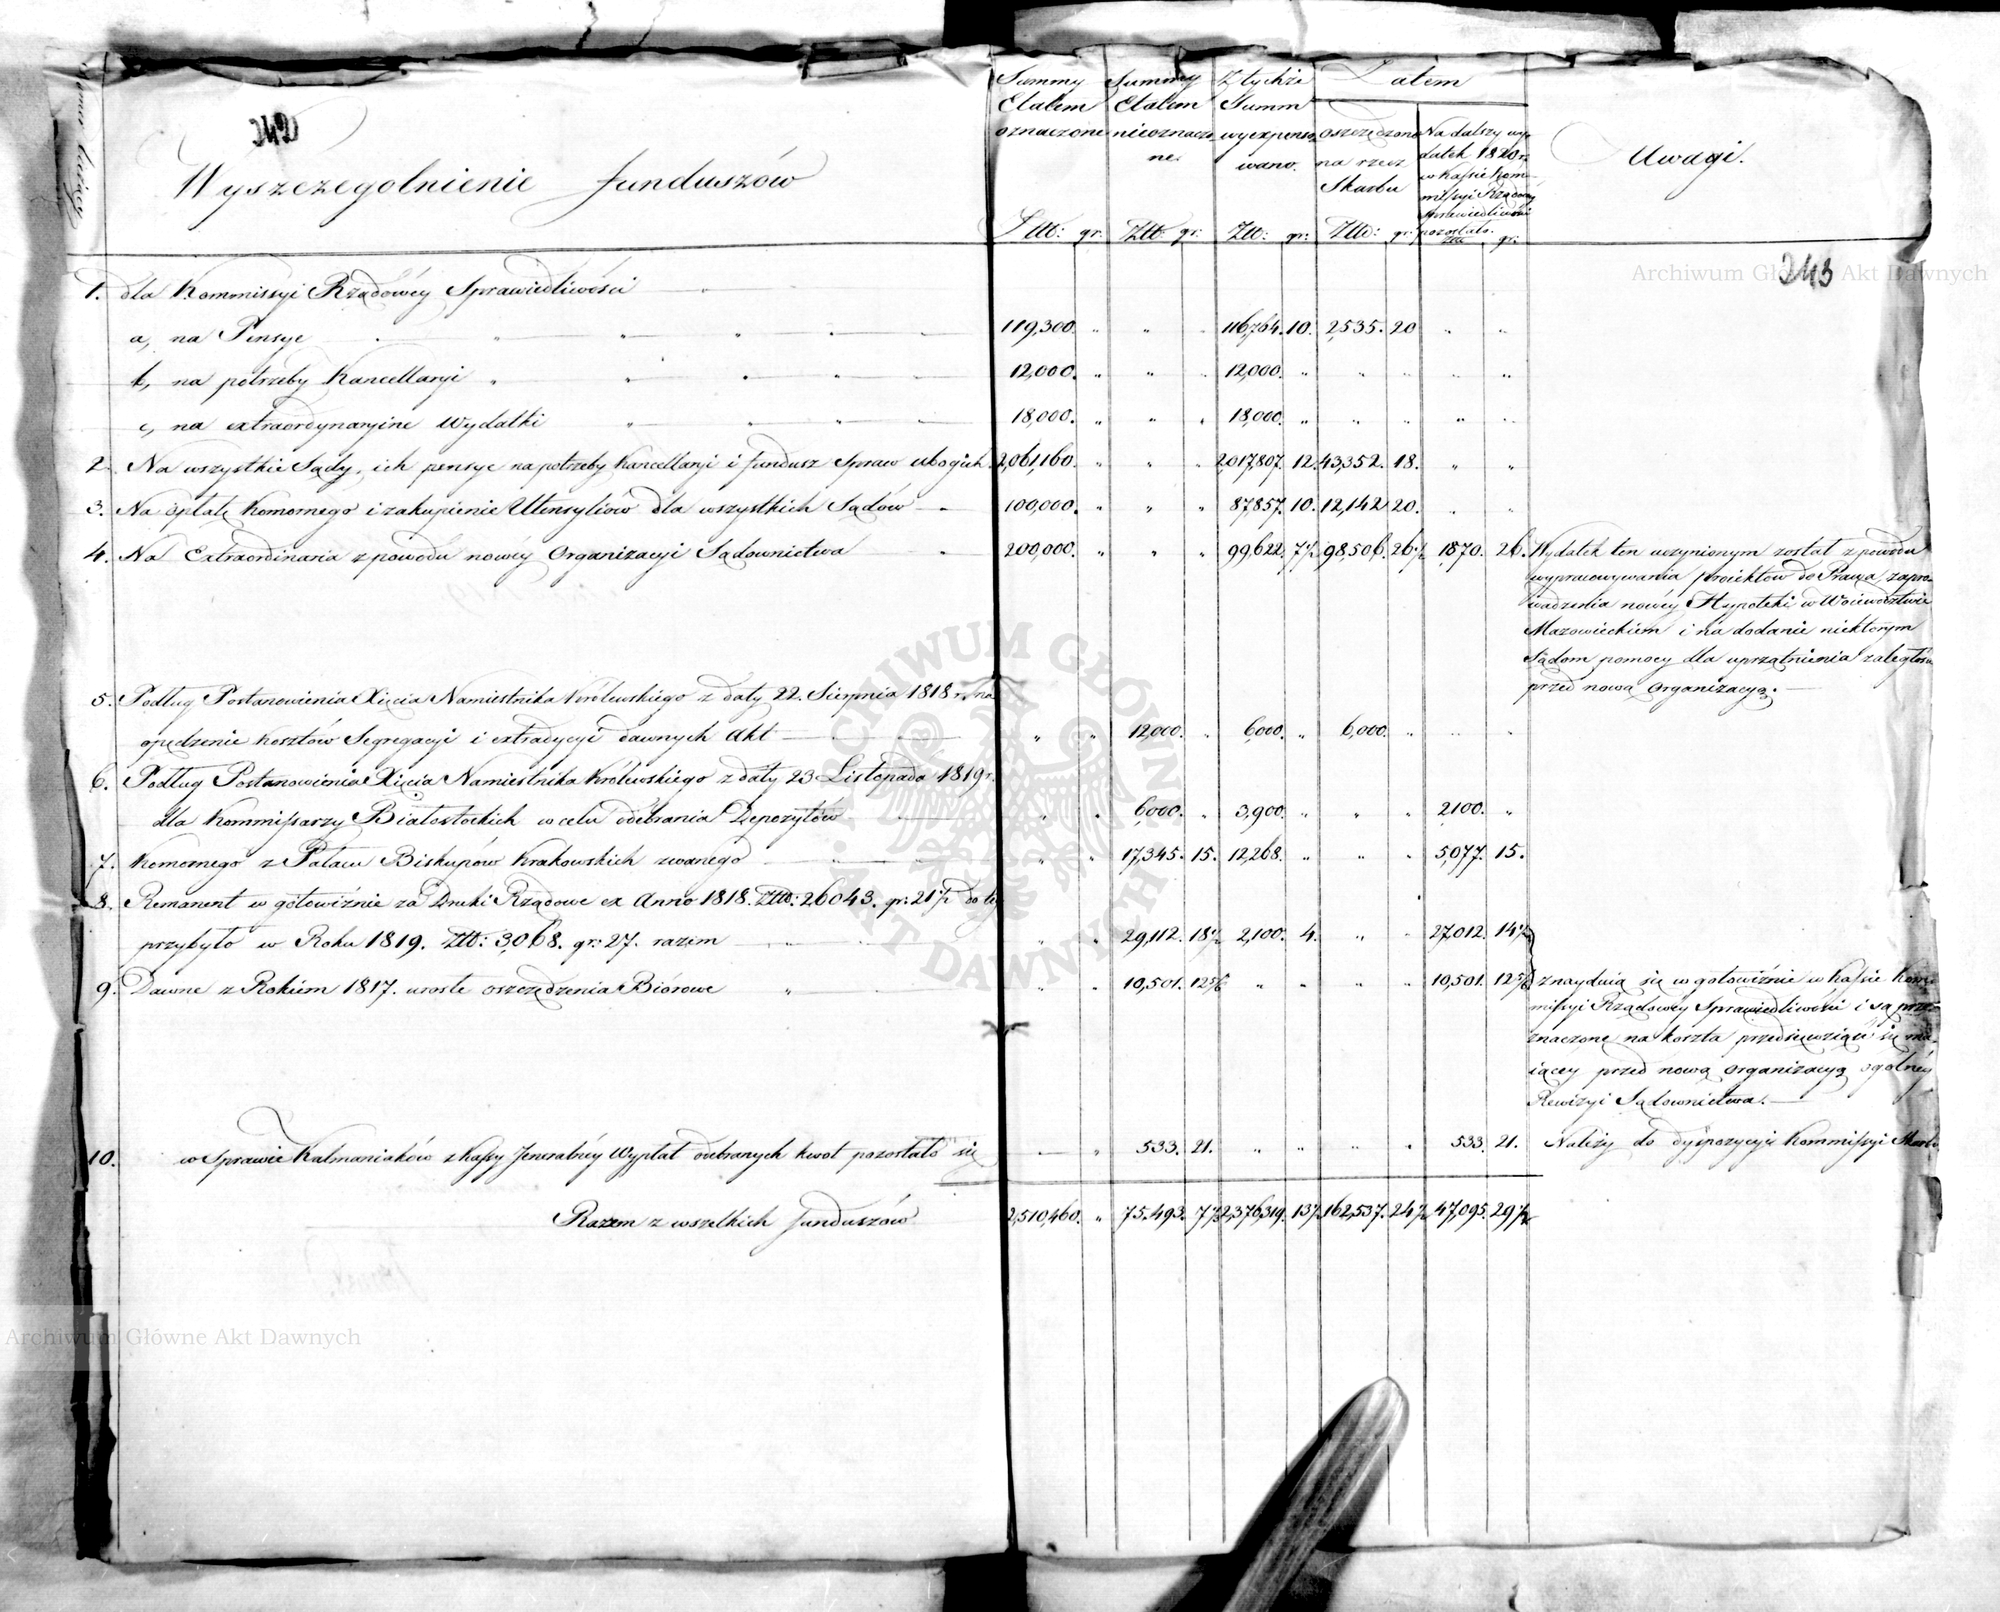 242
Wyszczegolnienie funduszów
Summy Etatem oznaczone
Summy Etatem nieoznaczone.
Z tychże Summ wyexpensowano.
Zatem
oszczędzono na rzecz Skarbu
Na dalszy wydatek 1820 r. w Kassie Kommissyi Rządowéy Sprawiedliwości pozostało.
Uwagi.
Złł: gr: Złł: gr: Złł: gr: Złł: gr: Złł gr:
243
Archiwum Główne Akt Dawnych
1. dla Kommissyi Rządowéy Sprawiedliwości
a, na Pensye 119,300. " " " 116,764. 10. 2,535. 20 " "
b, na potrzeby Kancellaryi 12,000. " " " 12,000. " " " " "
c, na extraordynaryine Wydatki 18,000. " " " 18,000. " " " " "
2. Na wszystkie Sądy, ich pensye na potrzeby Kancellaryi i fundusz Spraw ubogich 2,061,160. " " " 2,017,807. 12. 43,352. 18. " "
3. Na opłatę Komornego i zakupienie Utensyliów dla wszystkich Sądów 100,000. " " " 87,857. 10. 12,142 20. " "
4. Na Extraordinaria z powodu nowéy Organizacyi Sądownictwa 200,000. " " " 99,622. 7½ 98,506. 26½ 1,870. 26.
Wydatek ten uczynionym został z powodu
wypracowywania proiektów do Prawa, zapro-
wadzenia nowéy Hypoteki w Woiewództwie
Mazowieckiém i na dodanie niektórym
Sądom pomocy dla uprzątnienia zaległości
przed nową Organizacyą.
5. Podług Postanowienia Xięcia Namiestnika Królewskiego z daty 22. Sierpnia 1818 r. na
opędzenie kosztów Segregacyi i extradycyi dawnych Akt " " 12,000. " 6,000. " 6,000. " " "
6. Podług Postanowienia Xięcia Namiestnika Królewskiego z daty 23 Listopada 1819 r.
dla Kommissarzy Białostockich w celu odebrania Depozytów " " 6,000. " 3,900. " " " 2,100. "
7. Komornego z Pałacu Biskupów Krakowskich zwanego " " 17,345. 15. 12,268. " " " 5,077. 15.
8. Remanent w gotowiźnie za Druki Rządowe ex Anno 1818. Złł: 26043. gr: 21½ do tego
przybyło w Roku 1819. Złł: 3,068. gr: 27. razem " " 29,112. 18½ 2,100. 4. " " 27,012. 14½
9. Dawne z Rokiem 1817. urosłe oszczędzenia Biórowe " " 10,501. 12 5/6 " " " " 10,501. 12 5/6
znayduią się w gotowiźnie w Kassie Kom-
missyi Rządowéy Sprawiedliwości i są prze-
znaczone na koszta przedsięwziąść się ma-
iącéy przed nową Organizacyą ogólnéy
Rewizyi Sądownictwa.
10. w Sprawie Kalmaniaków z kassy Jeneralnéy Wypłat odebranych kwot pozostało się — " 533. 21. " " " " 533. 21. Należy do dyspozycyi Kommissyi Skarbu
Razem z wszelkich funduszów 2,510,460. " 75,493. 7½ 2,376,319. 13½ 162,537. 24½ 47,095. 29½
ARCHIWUM GŁÓWNE AKT DAWNYCH
Archiwum Główne Akt Dawnych